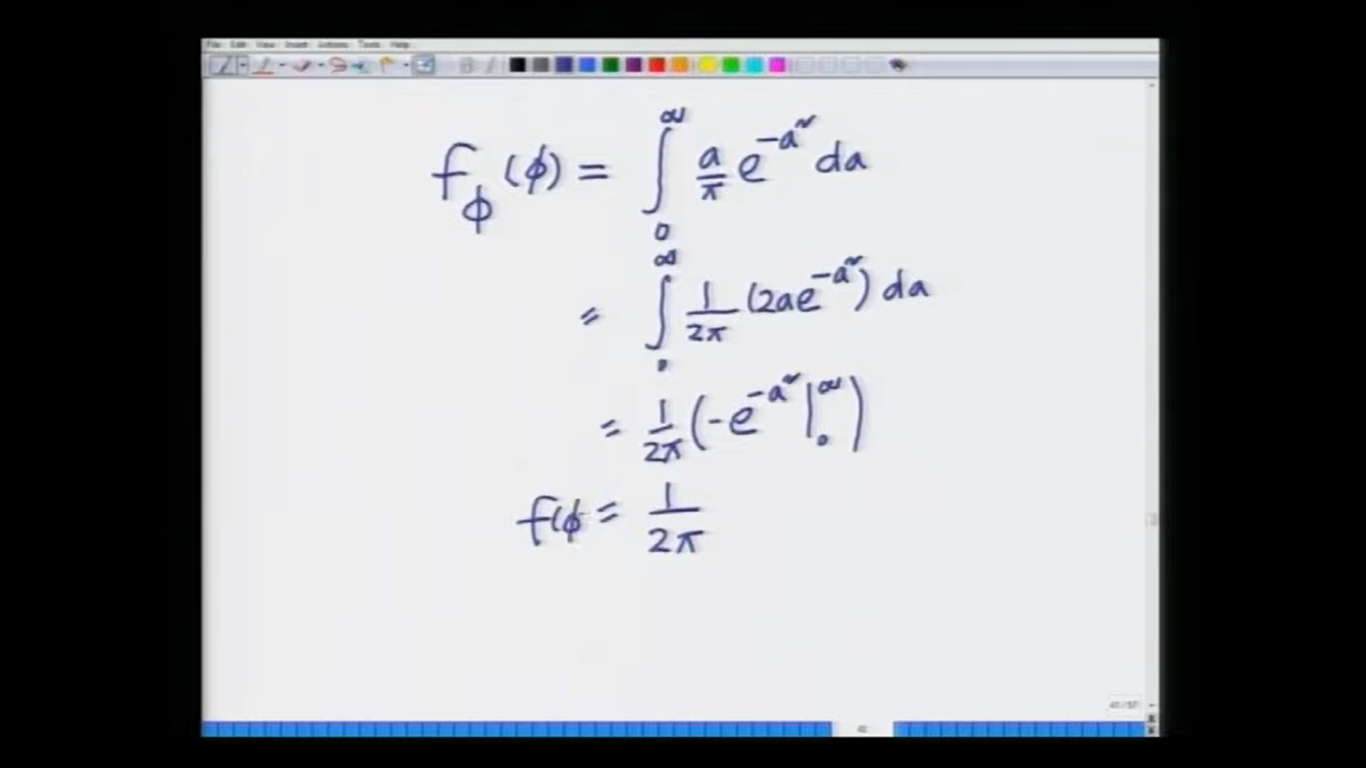 File Edit View Insert Actions Tools Help
f_ϕ(ϕ) = ∫₀^∞ a/π e^{-a²} da
= ∫₀^∞ 1/2π (2ae^{-a²}) da
= 1/2π (-e^{-a²} |₀^∞)
f(ϕ = 1/2π